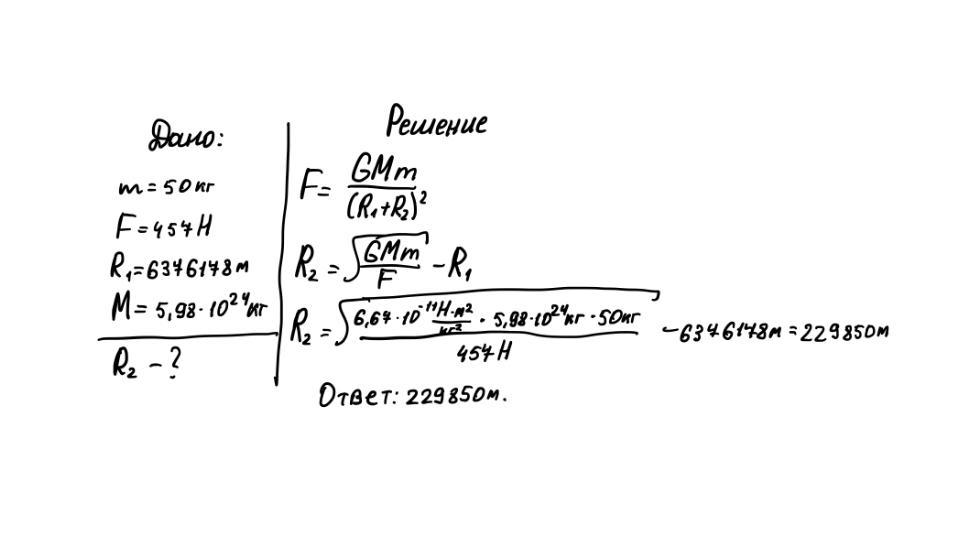 Дано:
m = 50кг
F = 457Н
R₁=6376178м
M = 5,98·10²⁴кг
R₂ - ?
Решение
F= GMm/(R₁+R₂)²
R₂ = √(GMm/F) - R₁
R₂ = √((6,67·10⁻¹¹ Н·м²/кг² · 5,98·10²⁴кг · 50кг)/457Н) - 6376178м = 229850м
Ответ: 229850м.